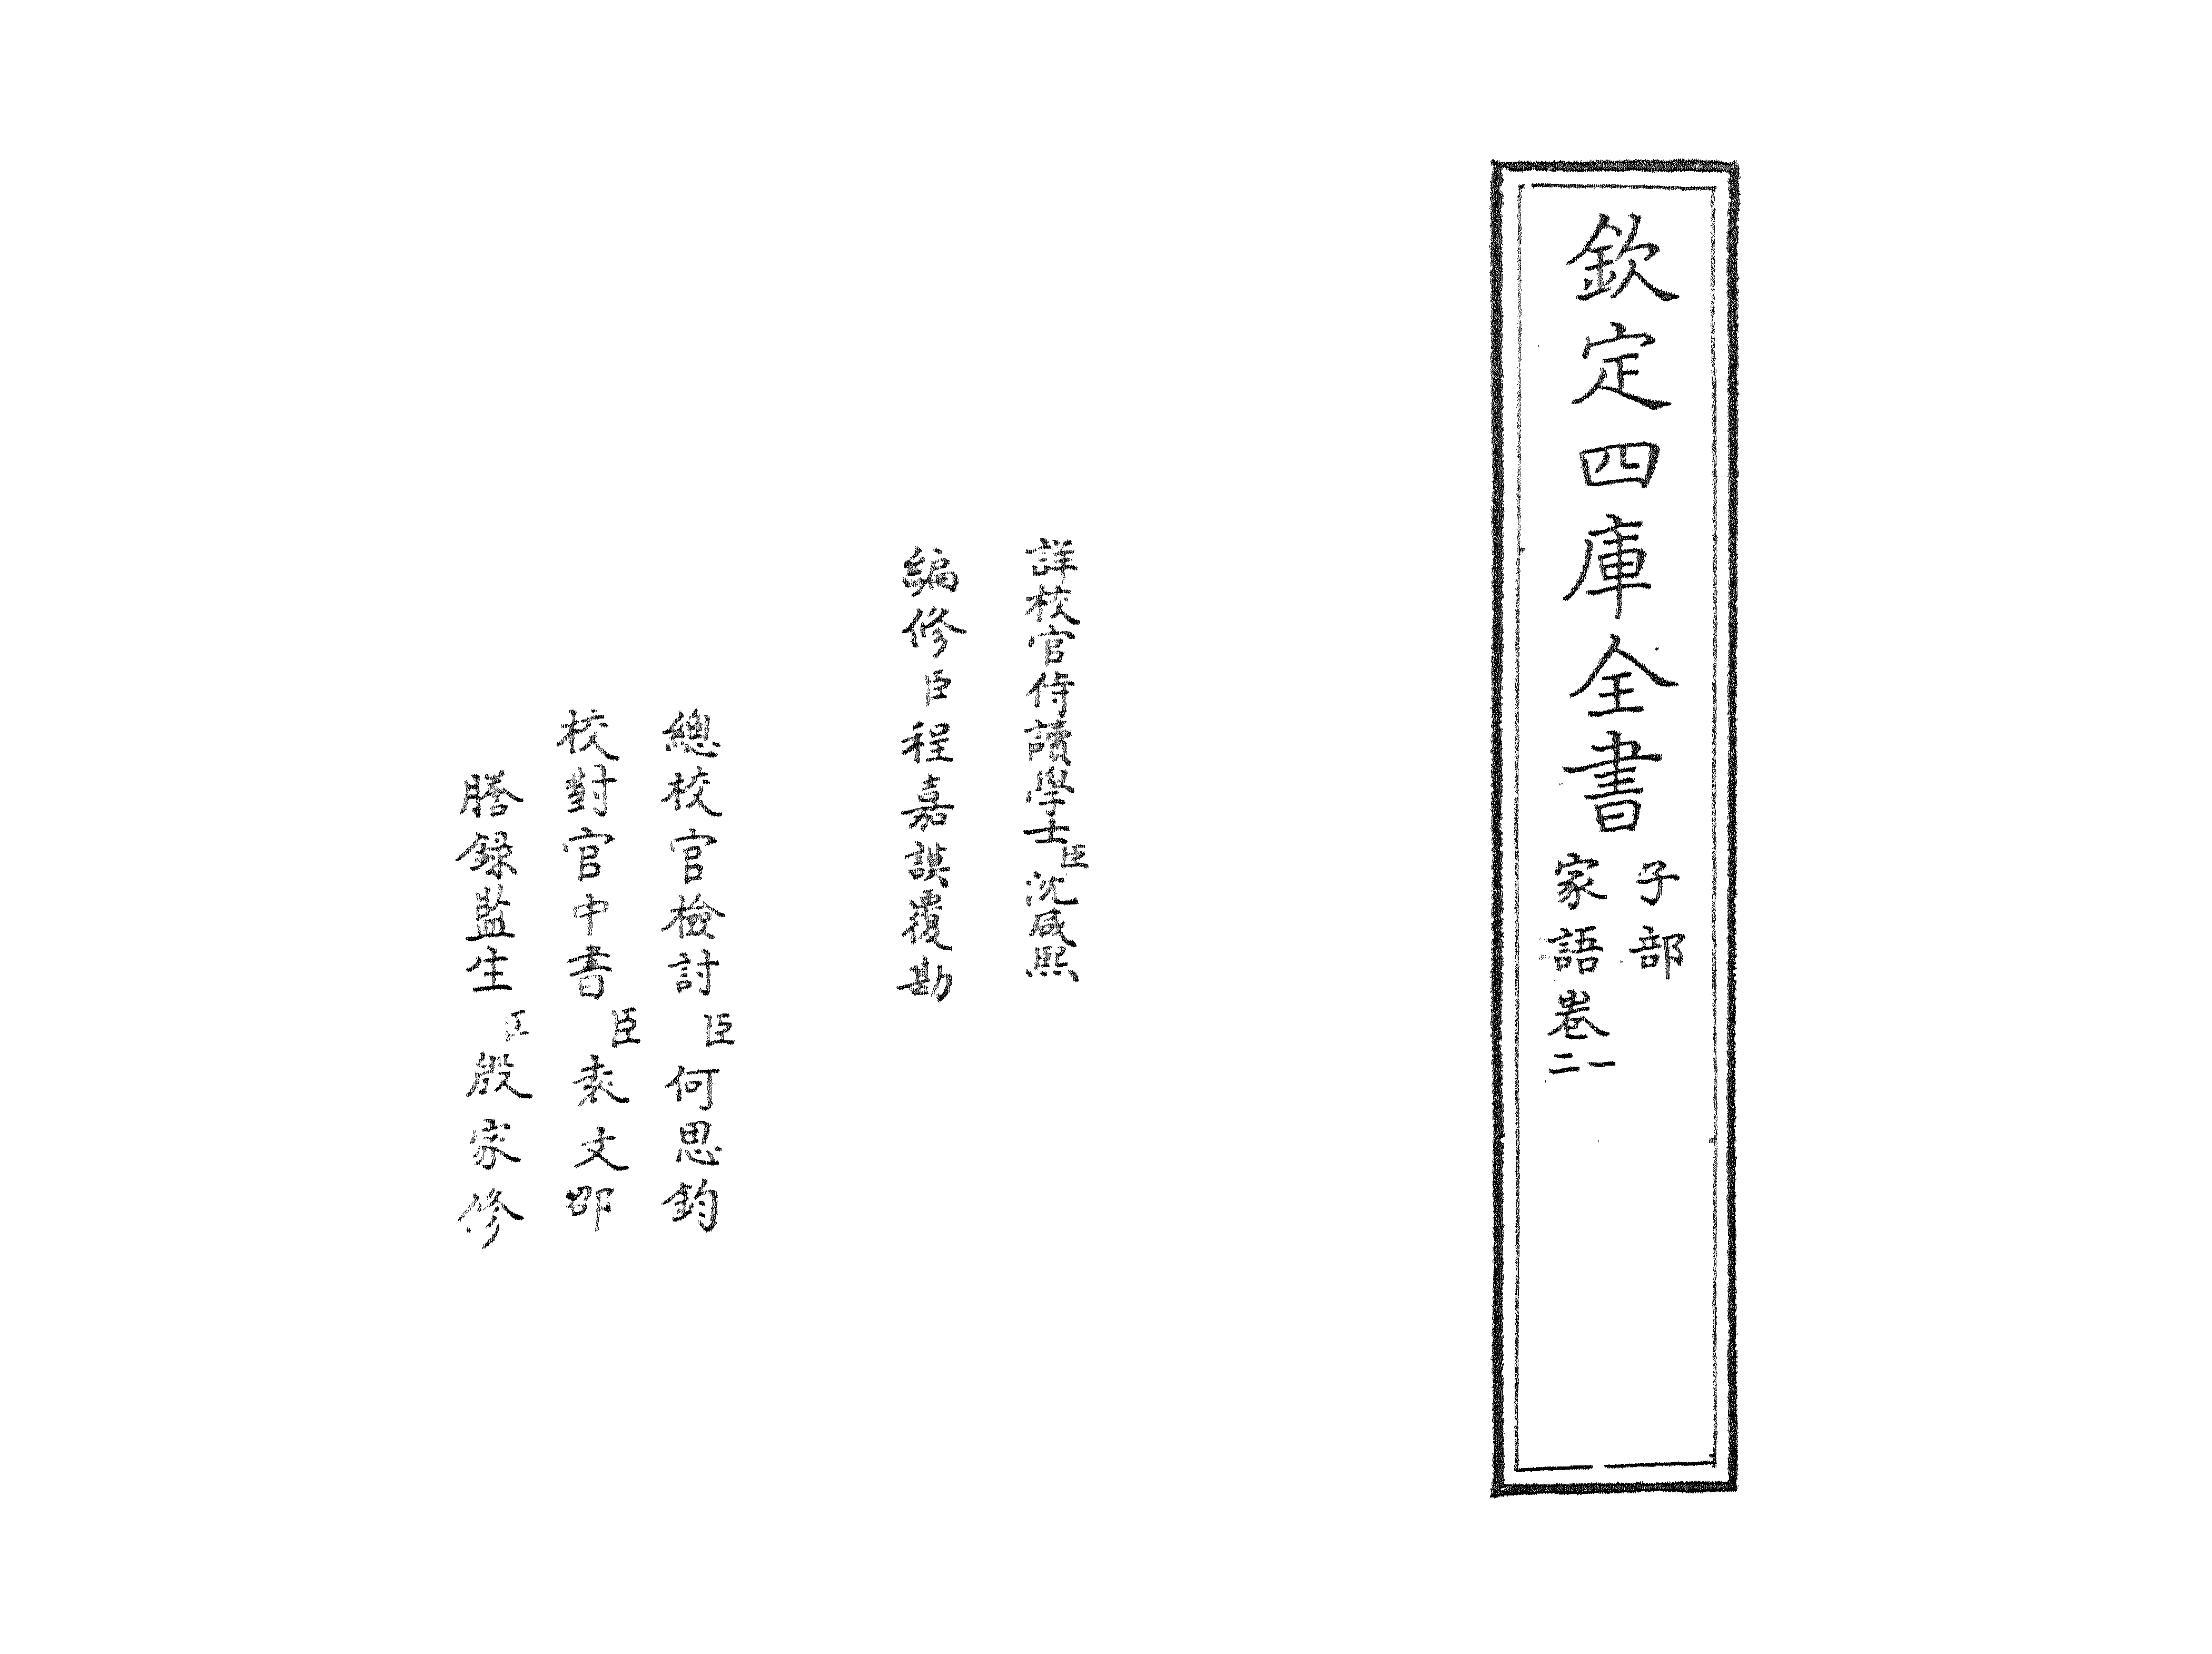 欽定四庫全書
子部
家語卷一
二
詳校官侍讀學士臣沈咸熙
編修臣程嘉謨覆勘
總校官檢討臣何思鈞
校對官中書臣袁文邵
謄錄監生臣殷家修